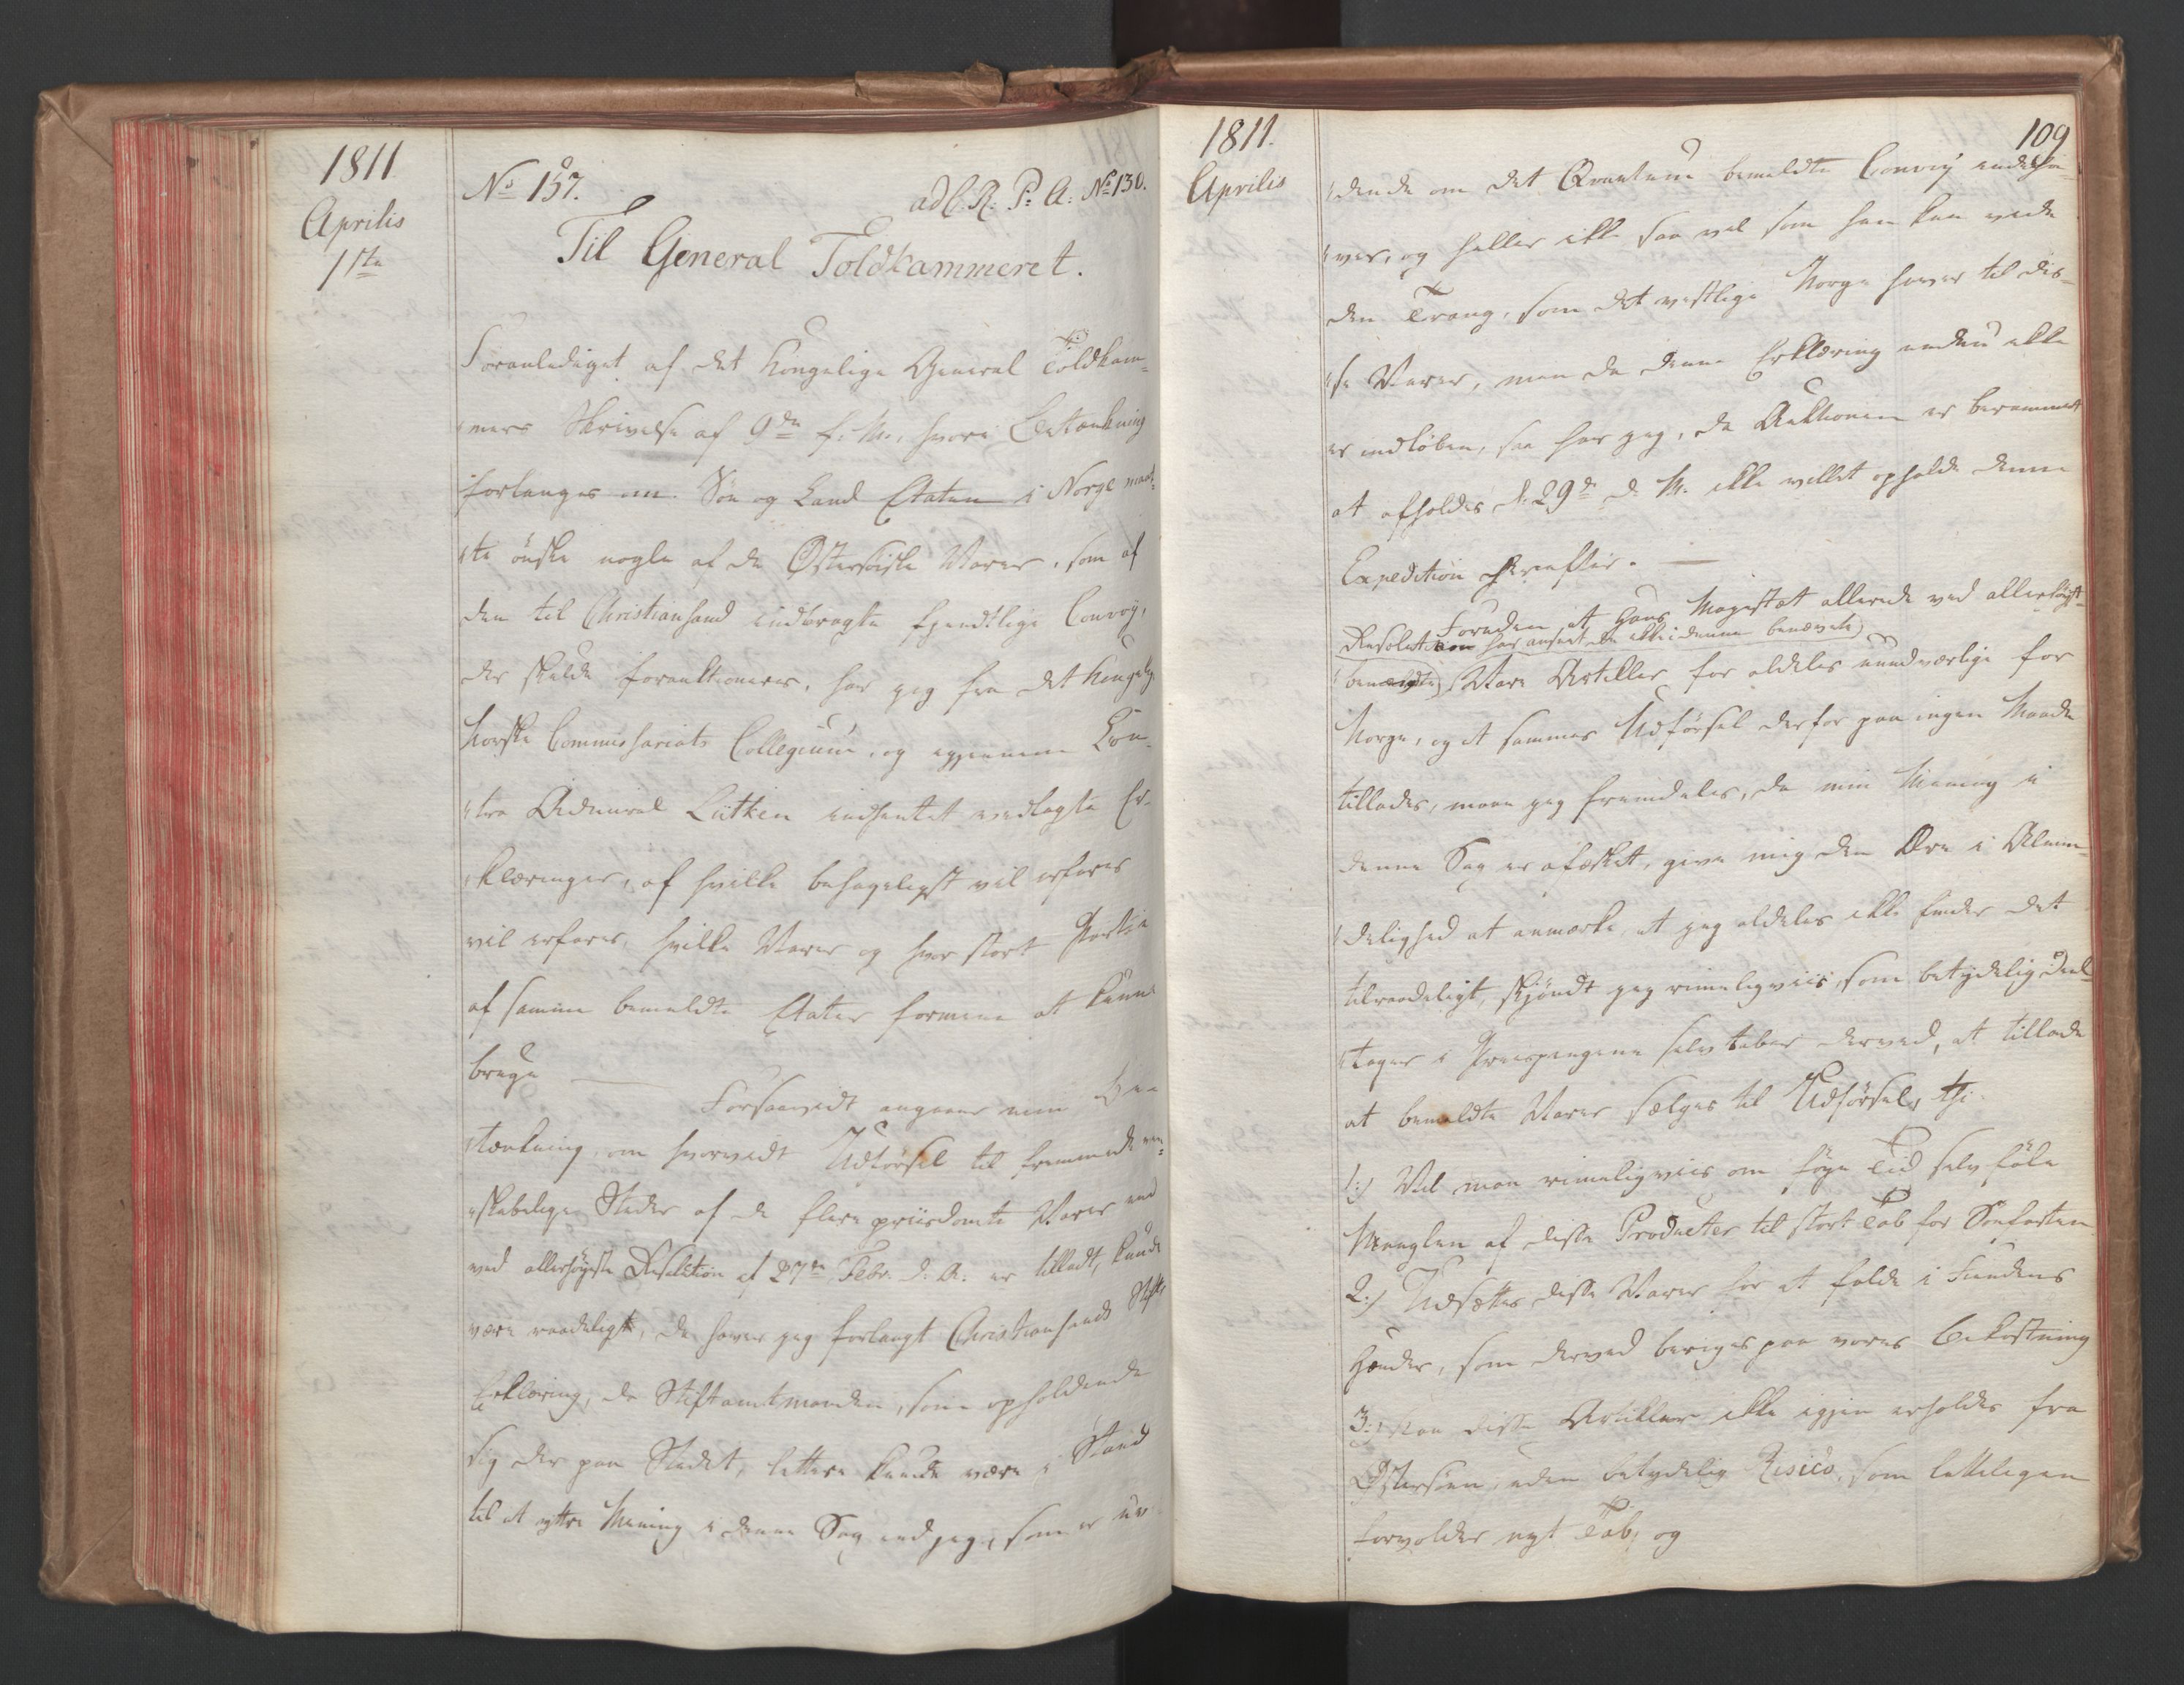 1811
Aprilis
1ste
No 157.
ad C. R: P: A: No 130.
Til General Toldkammeret.
Foranlediget af det Kongelige General Toldkam-
mers Skrivelse af 9de f: M:, hvori Betænkning
forlanges om Søe og Land Etaten i Norge maat-
te ønske nogle af de Østersøiske Varer, som af
den til Christiansand indbragte fjendtlige Convoy,
der skulde forauktioneres, har jeg fra det Kongelige
Norske Commissariats Collegium, og igjennem Con-
tra Admiral Lütken indhentet vedlagte Er-
klæringer, af hvilke behageligst vil erfares
vil erfares, hvilke Varer og hvor stort Partie
af samme bemeldte Etater formene at kunne
bruge
Forsaavidt angaaer min Be-
tænkning, om hvorvidt Udførsel til fremmede ven-
skabelige Steder af de flere priisdømte Varer end
ved allerhøyeste Resolution af 27de Febr. d. A. er tilladt, kunde
være raadeligt, da haver jeg forlangt Christiansands Stifts
Erklæring, da Stiftamtmanden, som opholdende
sig der paa Stedet, lettere kunde være i Stand
til at yttre Mening i denne Sag end jeg, som er uv-
1811.
Aprilis
109
dende om det Qvantum bemeldte Convoy indehol-
ver, og heller ikke saa vel som han kan vide
den Trang, som det vestlige Norge haver til dis-
se Varer, men da denne Erklæring endnu ikke
er indløben, saa har jeg, da Auktionen er berammet
at afholdes d. 29de d. M. ikke villet opholde denne
Expedition herefter. —
Foruden at Hans Majestæt allerede ved allerhøyst-
Resolution har anseet de ikke i denne benævnte
benævnte Vare Artikler for aldeles uundværlige for
Norge, og at sammes Udførsel derfor paa ingen Maade
tillades, maa jeg fremdeles, da min Mening i
denne Sag er æsket, give mig den Ære i Almin-
delighed at anmærke, at jeg aldeles ikke finder det
tilraadeligt, skjøndt jeg rimeligviis, som betydelig Deel-
tager i Priispengene selv taber derved, at tillade
at bemeldte Varer sælges til Udførsel, thi
1:) Vil man rimeligviis om føye Tid selv føle
Manglen af disse Producter til stort Tab for Søefarten
2:) Udsættes disse Varer for at falde i Fiendens
Hænder, som derved beriges paa vores Bekostning
3:) Kan disse Artikler ikke igjen erholdes fra
Østersøen, uden betydelig Risico, som letteligen
forvolder nyt Tab, og